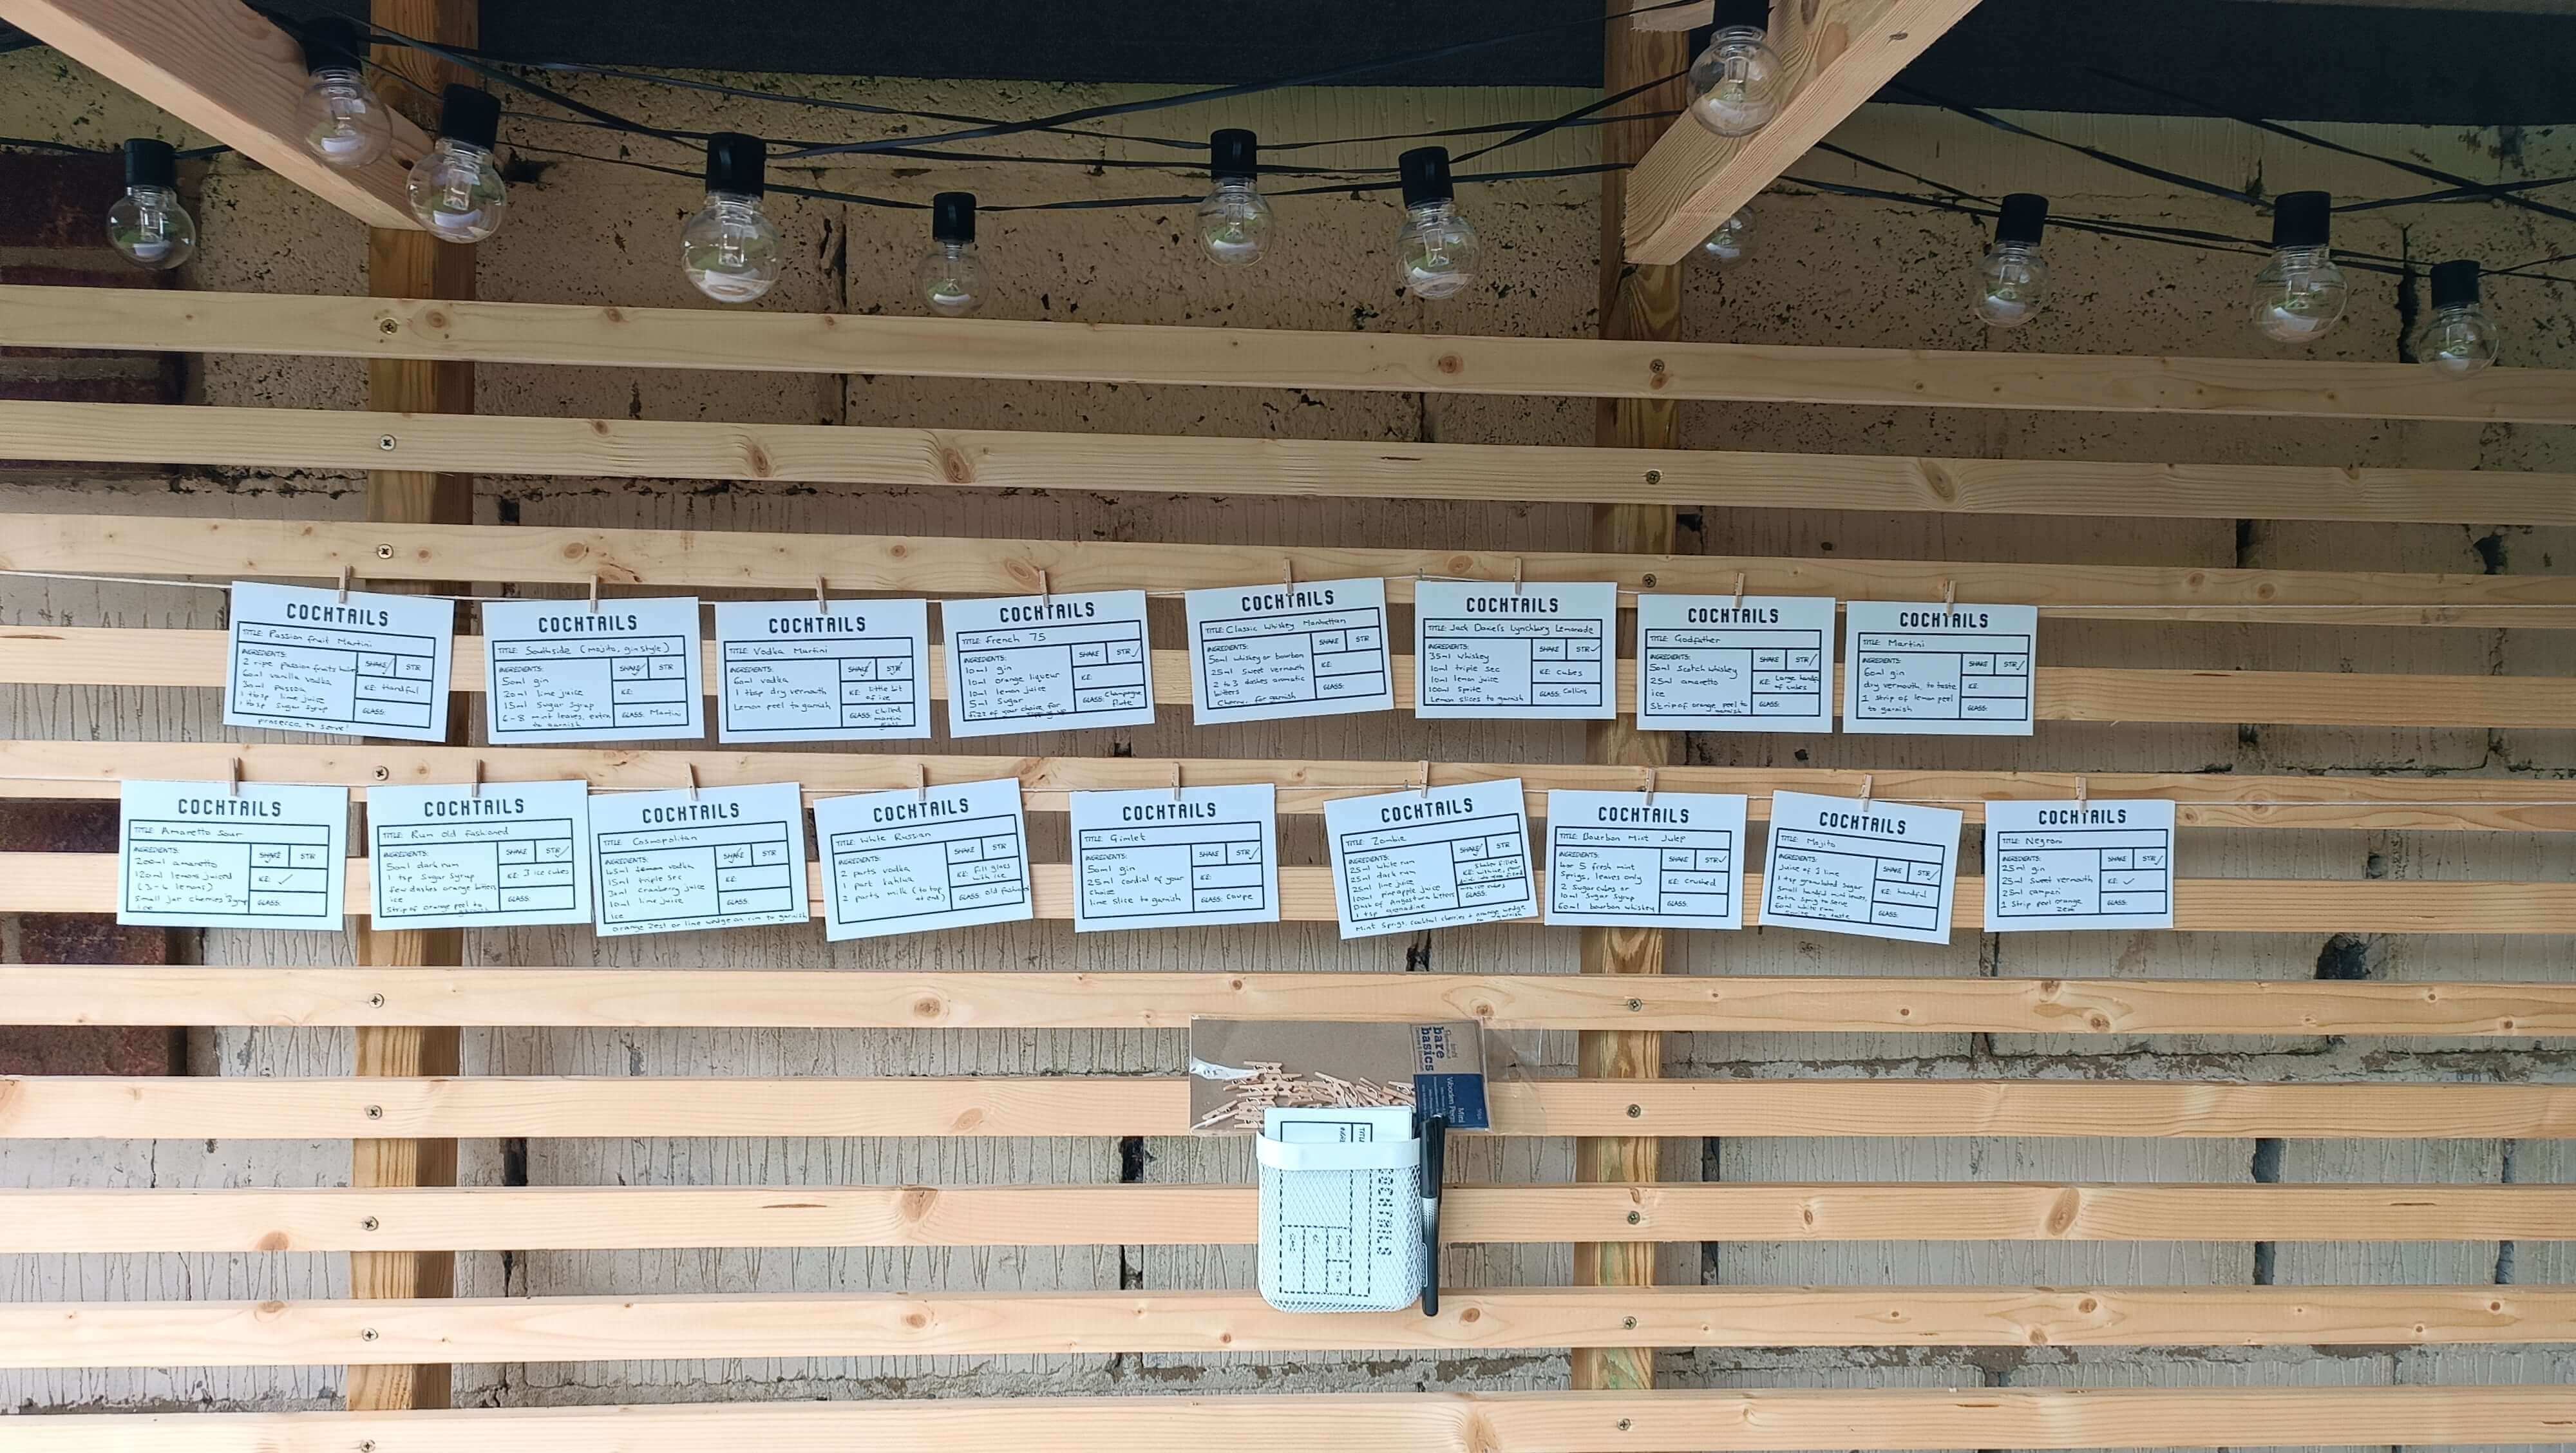 COCKTAILS
TITLE: Passion fruit Martini
INGREDIENTS:
2 ripe passion fruits
60ml vanilla vodka
30ml passoa
1 tbsp lime juice
1 tbsp sugar syrup
prosecco to serve!
SHAKE/ STR
ICE: Handful
GLASS:
COCKTAILS
TITLE: Southside (mojito, gin style)
INGREDIENTS:
50ml gin
20ml lime juice
15ml sugar syrup
6-8 mint leaves, extra
to garnish
SHAKE STR
KE:
GLASS: Martini
COCKTAILS
TITLE: Vodka Martini
INGREDIENTS:
60ml vodka
1 tbsp dry vermouth
Lemon peel to garnish
SHAKE STR
KE: little bit
of ice
GLASS: chilled
martini
COCKTAILS
TITLE: French 75
INGREDIENTS:
10ml gin
10ml orange liqueur
10ml lemon juice
5ml sugar
fizz of your choice for
SHAKE STR
KE:
GLASS: Champagne
flute
COCKTAILS
TITLE: Classic Whiskey Manhattan
INGREDIENTS:
50ml whiskey or bourbon
25ml sweet vermouth
2 to 3 dashes aromatic
bitters
Cherry, for garnish
SHAKE STR
KE:
GLASS:
COCKTAILS
TITLE: Jack Daniel's Lynchburg Lemonade
INGREDIENTS:
35ml whiskey
10ml triple sec
10ml lemon juice
100ml sprite
Lemon slices to garnish
SHAKE STR
KE: cubes
GLASS: Collins
COCKTAILS
TITLE: Godfather
INGREDIENTS:
50ml Scotch whiskey
25ml amaretto
ice
Strip of orange peel to
garnish
SHAKE STR
KE: Large handful
of cubes
GLASS:
COCKTAILS
TITLE: Martini
INGREDIENTS:
60ml gin
dry vermouth, to taste
1 strip of lemon peel
to garnish
SHAKE STR
KE:
GLASS:
COCKTAILS
TITLE: Amaretto sour
INGREDIENTS:
200ml amaretto
120ml lemons juiced
(3-4 lemons)
Small jar cherries syrup
ice
SHAKE STR
KE: ✓
GLASS:
COCKTAILS
TITLE: Rum old fashioned
INGREDIENTS:
50ml dark rum
1 tsp sugar syrup
few dashes orange bitters
ice
Strip of orange peel to
garnish
SHAKE STR
KE: 3 ice cubes
GLASS:
COCKTAILS
TITLE: Cosmopolitan
INGREDIENTS:
45ml lemon vodka
15ml triple sec
30ml cranberry juice
10ml lime juice
ice
orange zest or lime wedge on rim to garnish
SHAKE STR
KE:
GLASS:
COCKTAILS
TITLE: White Russian
INGREDIENTS:
2 parts vodka
1 part kahlua
2 parts milk (to top
at end)
SHAKE STR
KE: fill glass
with ice
GLASS: old fashioned
COCKTAILS
TITLE: Gimlet
INGREDIENTS:
50ml gin
25ml cordial of your
choice
lime slice to garnish
SHAKE STR
KE:
GLASS: Coupe
COCKTAILS
TITLE: Zombie
INGREDIENTS:
25ml white rum
25ml dark rum
25ml lime juice
100ml pineapple juice
Dash of Angostura bitters
1 tsp grenadine
Mint sprigs, cocktail cherries + orange wedge
SHAKE STR
GLASS:
COCKTAILS
TITLE: Bourbon Mint Julep
INGREDIENTS:
4 or 5 fresh mint
sprigs, leaves only
2 sugar cubes or
10ml sugar syrup
60ml bourbon whiskey
SHAKE STR
KE: crushed
GLASS:
COCKTAILS
TITLE: Mojito
INGREDIENTS:
Juice of 1 lime
1 tsp granulated sugar
Small handful mint leaves,
extra sprig to serve
60ml white rum
to taste
SHAKE STR
KE: handful
GLASS:
COCKTAILS
TITLE: Negroni
INGREDIENTS:
25ml gin
25ml sweet vermouth
25ml campari
1 strip peel orange
zest
SHAKE STR
KE: ✓
GLASS:
bare
basics
Mini
Wooden Pegs
COCKTAILS